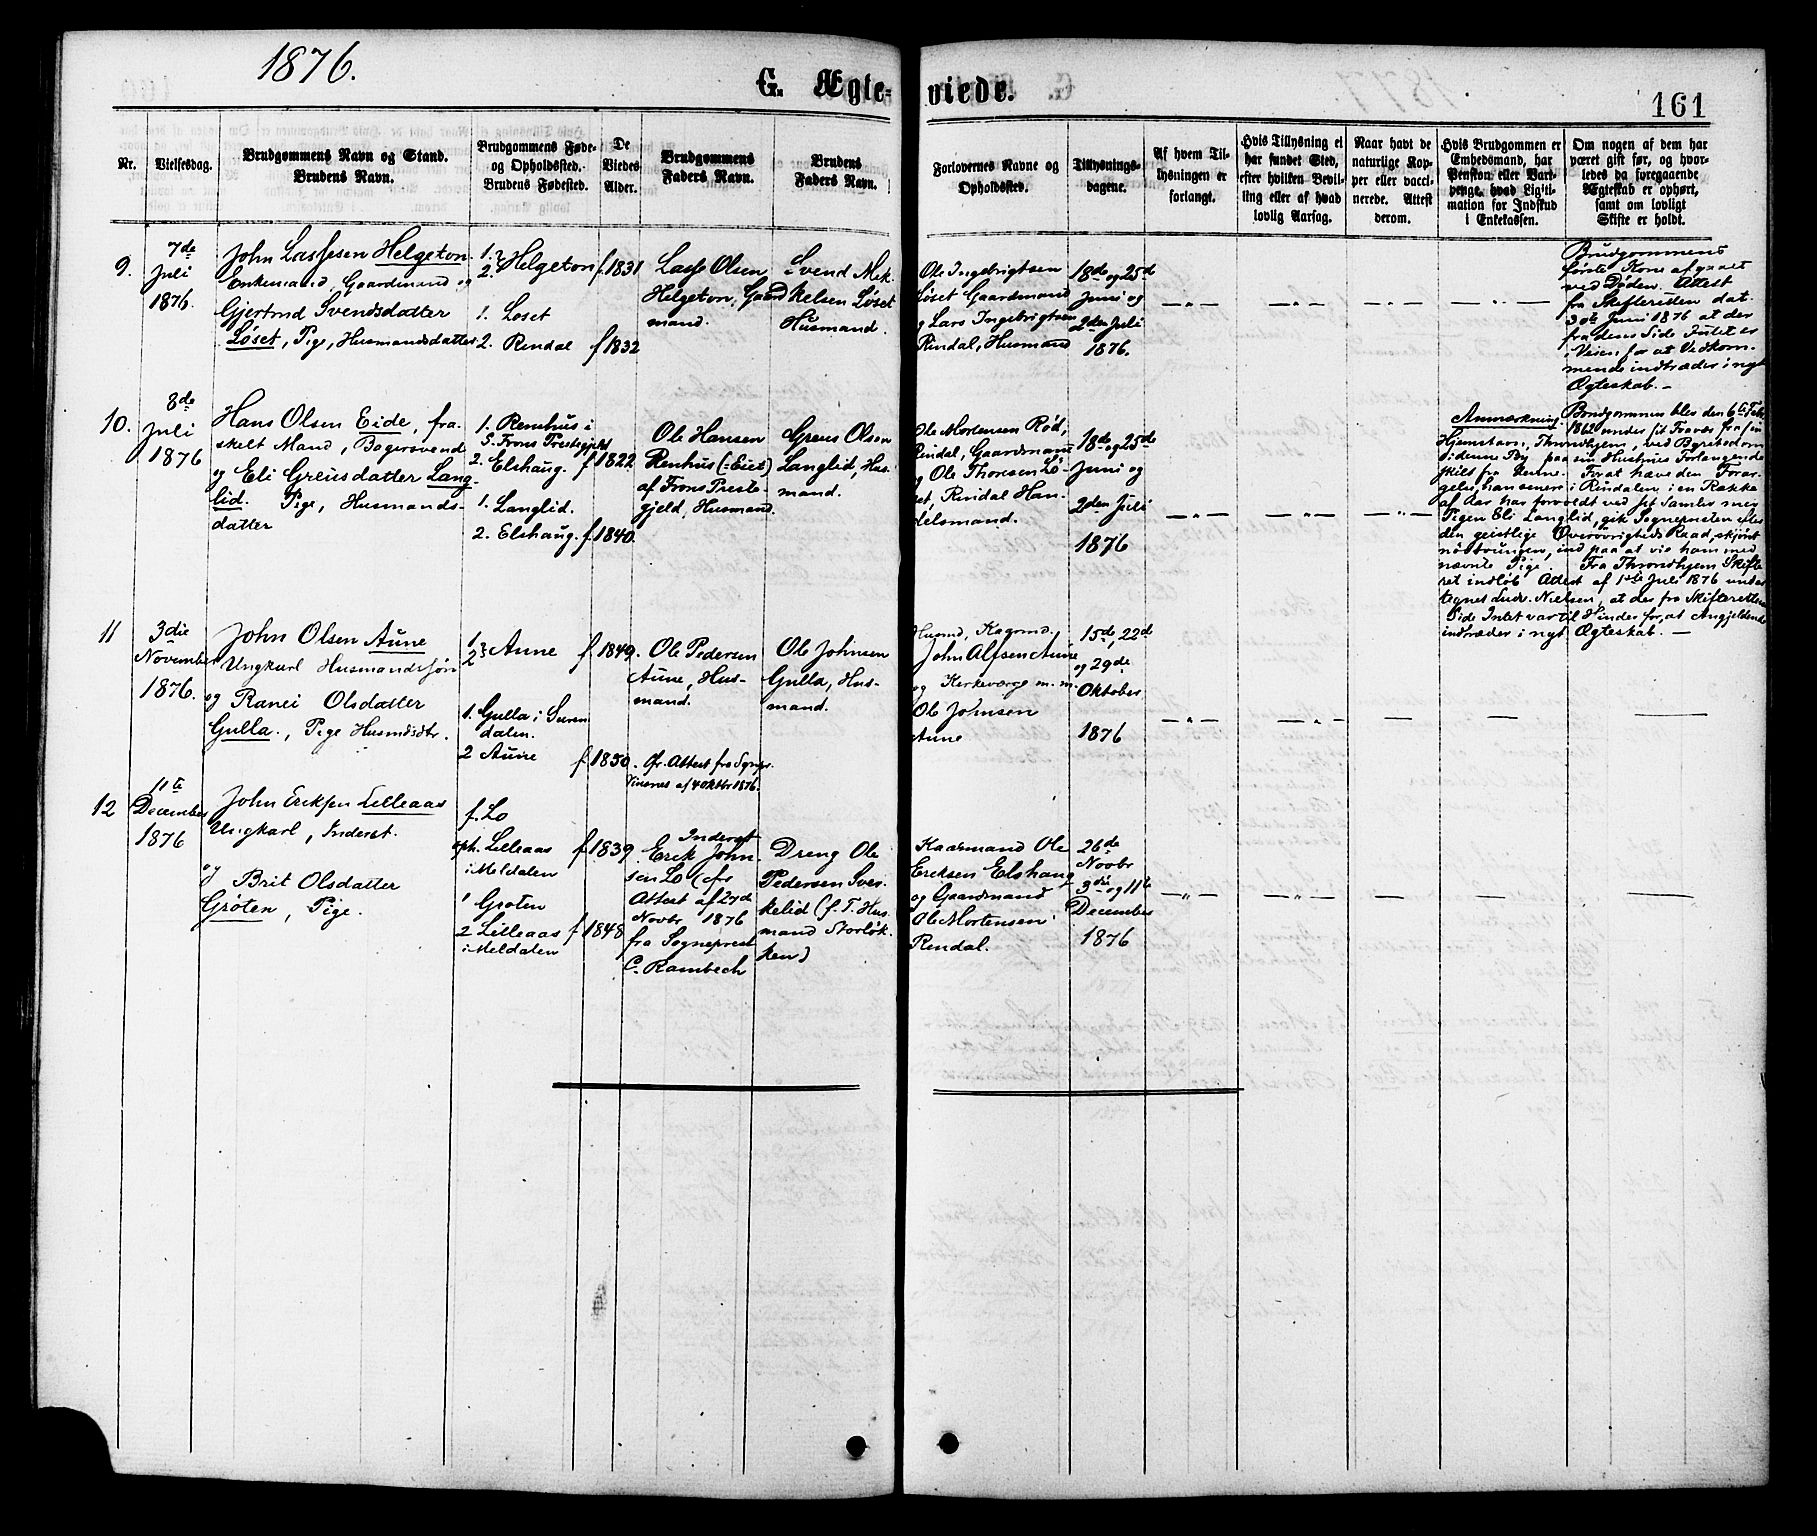 1876.
G. Ægte-
viede.
161
Nr.
Vielsesdag.
Brudgommens Navn og Stand.
Brudens Navn.
Brudgommens Føde-
og Opholdssted.
Brudens Fødested.
De
Viedes
Alder.
Brudgommens
Faders Navn.
Brudens
Faders Navn.
Forlovernes Navne og
Opholdssted.
Tillysnings-
dagene.
Af hvem Til-
lysningen er
forlangt.
Hvis Tillysning ei
har fundet Sted,
efter hvilken Bevil-
ling eller af hvad
lovlig Aarsag.
Naar havt de
naturlige Kop-
per eller vacci-
nerede. Attest
derom.
Hvis Brudgommen er
Embedsmand, har
Pension eller Vart-
penge, hvad Ligiti-
mation for Indskud
i Enkekassen.
Om nogen af dem har
været gift før, og hvor-
ledes da foregaaende
Ægteskab er ophørt,
samt om lovligt
Skifte er holdt.
9.
7de
Juli
1876.
John Lassesen Helgeton
Enkemand, Gaardmand og
Gjertrud Svendsdatter
Løset, Pige, Husmandsdatter
1.
2. Helgeton
1. Løset
2. Rindal
f. 1831
f 1832
Lasse Olsen
Helgeton, Gaard
mand.
Svend Mik-
kelsen Løset
Husmand.
Ole Ingebrigtsen
Løset Gaardmand
og Lars Ingebrigtsen
Rindal, Husmand
18de og 25de
Juni og
2den Juli
1876.
Brudgommens
første Kone afgaaet
ved Døden. Attest
fra Skifteretten dat.
30te Juni 1876 at der
fra dens Side Intet er
i Veien for at Vedkom-
mende indtræder i nyt
Ægteskab. —
10.
8de
Juli
1876
Hans Olsen Eide, fra-
skelt Mand, Bagersvend
og Eli Greusdatter Lang-
lid. Pige, Husmands-
datter
1. Renhus i
S. Frons Prestegjeld
2. Elshaug.
1. Langlid.
2. Elshaug.
f 1822
f. 1840.
Ole Hansen
Renhus (: Eie:)
af Frons Preste-
gjeld, Husmand.
Greus Olsen
Langlid, Hus-
mand.
Ole Mortensen Rød,
Rindal, Gaardmand
og Ole Thoresen Lø-
set, Rindal Han-
delsmand.
18de og 25de
Juni og
2den Juli
1876
Anmærkning. Brudgommen blev den 6te Febr
1862 under sit Fravær fra sin
Hjemstavn, Throndhjem, ved Byretsdom
sidenne By paa sin Hustrues Forlangende
skilt fra denne. For at hæve den Forar-
gelse, han senere i Rindalen i en Række
af Aar har forvoldt ved sit Samliv med
Pigen Eli Langlid, gik Sognepresten efter
den geistlige Overøvrigheds Raad, skjønt
nødtvungen, ind paa at vie ham med
nævnte Pige. Fra Throndhjems Skifte
ret indløb Attest af 1ste Juli 1876 under
tegnet Ludv. Nielsen, at der fra Skifterettens
Side Intet var til Hinder for, at Angjeldende
indtræder i nyt Ægteskab. —
11
3die
November
1876.
John Olsen Aune
Ungkarl Husmandssøn
og Ranei Olsdatter
Gulla., Pige Husmdsdtr.
1.
2 Aune
1. Gulla i Suren
dalen.
2 Aune
f. 1849.
f 1850
Ole Pedersen
Aune, Hus-
mand.
Ole Johnsen
Gulla, Hus-
mand.
. Cfr. Attest fra Sognepr.
Vinsnes af 4 Oktbr 1876.
Husmd, Kagsmd.
John Alfsen Aune
og Kirkeværge m. m.
Ole Johnsen
Aune
15de, 22de
og 29de
Oktober
1876
12
11te
December
1876
John Eriksen Lilleaas
Ungkarl, Inderst.
og Brit Olsdatter
Grøten, Pige.
f. Lo
oph. Lilleaas
i Meldalen
1 Grøten
2 Lilleaas
i Meldalen
f 1839
f 1848
Inderst
Erik John-
sen Lo (cfr
Attest af 27de
Novbr 1876
fra Sogneprest
C. Rambech
Dreng Ole
Pedersen Sver-
kelid (f. T. Hus-
mand Storløk-
ken)
Kaarmand Ole
Eriksen Elshaug
og Gaardmand
Ole Mortensen
Rindal.
26de
Novbr
3die og 11te
December
1876